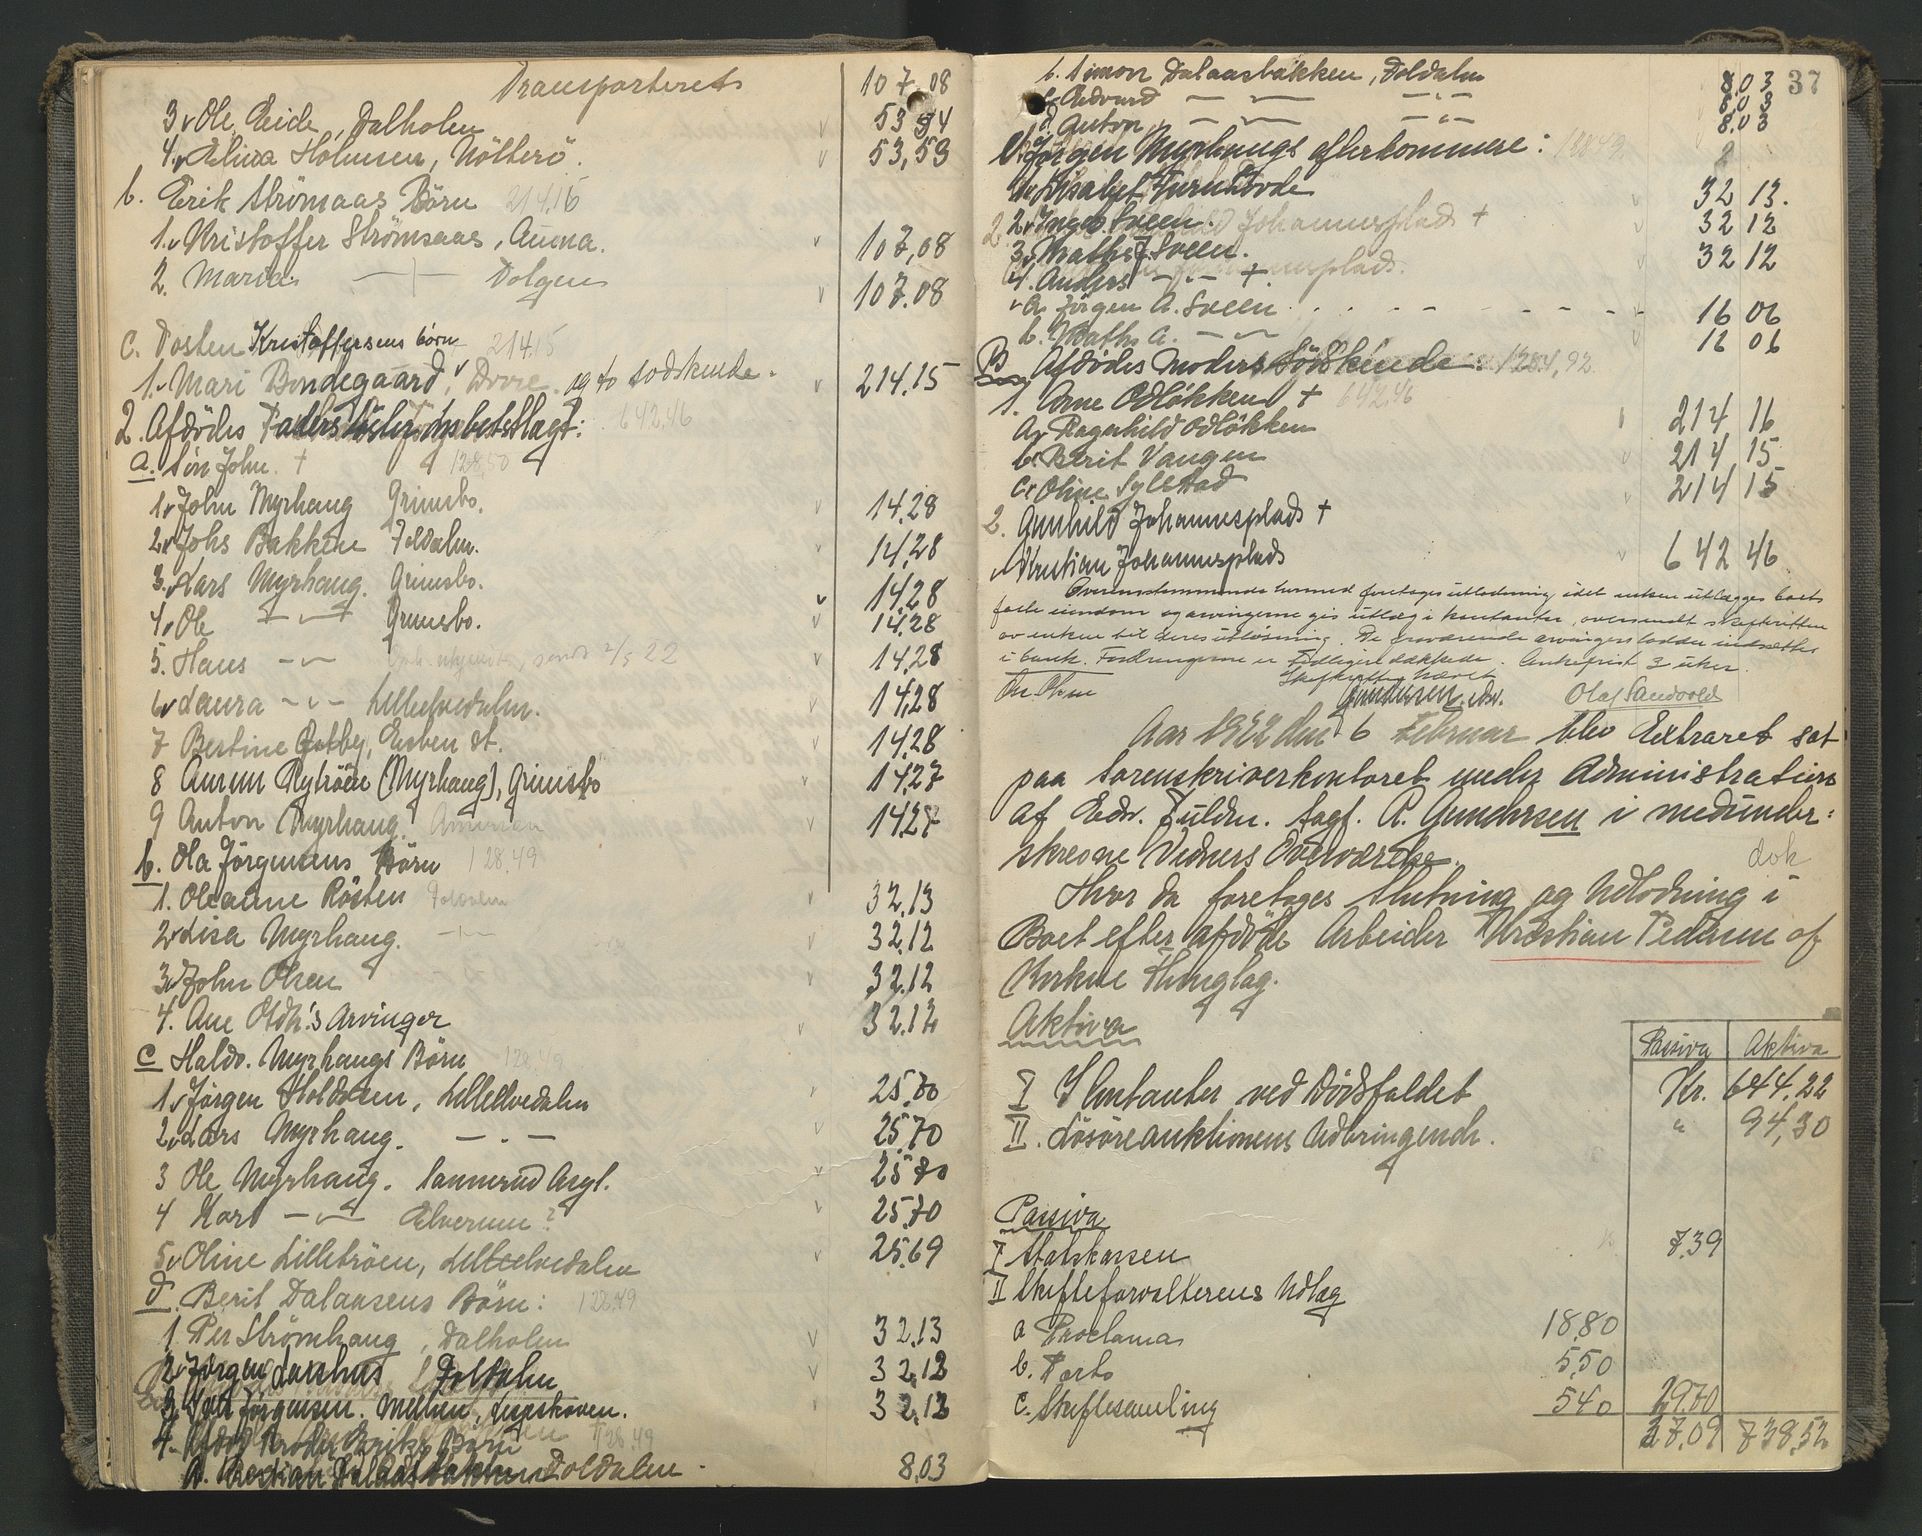 Transporteret 107,08
3 Ole Eide, Dalholen 53 54
4. Elina Holmsen, Nötterö. 53,53
b. Erik Strömaas Börn 214,16
1. Kristoffer Strömsaas, Auma. 107,08
2. Marie — Dolgen 107.08
C. Tosten Kristoffersens börn 214.15
1. Mari Bondegaard, Dovre og to sødskende. 214.15
2. Afdödes Faders 642,46
a. Sön John. + 128,50
1. John Myrhaug Grimsbo. 14.28
2. Johs Bakken Foldalen. 14,28
3. Lars Myrhaug. Grimsbo. 14,28
4. Ole — " — Grimsbo. 14.28
5. Hans — " — 22 14,28
6. Laura — " — Lilleelvedalen. 14,28
7 Bertine Østby, Espen st. 14.28
8 Rytröen (Myrhaug), Grimsbo 14,27
9 Anton Myrhaug. Amerika 14,27
b. Ola Jörgensens Börn 128,49
1. Oleanne Rösten Foldalen 32,13
2. Lisa Myrhaug. — " — 32.12
3. John Olsen 32.12
4. Ane Oldh.'s Arvinger 32.12
C Haldv. Myrhaugs Börn 128,49
1. Jörgen Holdsen, Lilleelvedalen 25.70
2. Lars Myrhaug. — " — 25,70
3 Ole Myrhaug. 25 70
4 Kari — " — Elverum? 25,70
5. Oline Lilletröen, Lilleelvedalen 25,69
d. Berit Dalaasens Börn: 128,49
1. Per Strömhaug, Dalholen 32,13
2. Jörgen Foldalen 32,12
3 Jörgensen. 32,12
4. Börn 128,49
Foldalen. 8,03
37
b. Simon Dalaasbakken, Foldalen 8,03
c. Edvard — " — — " — 8,03
d. Anton — " — — " — 8.03
e. Jörgen Myrhaugs efterkommere: 128,49
32 13.
2. Inger Sveen 32 12
3. Sveen. 32 12
4. Anders — " — +
a. Jörgen A. Sveen 16 06
b. Maths A. — " — 16 06
B Afdödes Moders Södskende: 1284,92
1. Arne Odlökken + 642,46
a. Ragnhild Odlökken 214 16
b. Berit Vangen 214 15
c. Oline 214 15
2. Gunhild Johannesplads +
Kristian Johannesplads 642 46
Overensstemmende hermed foretages utlodning idet enken utlægges boets
faste eiendom og arvingerne gis utlæg i kontanter, oversendt skifteretten
av enken til deres utlösning. De fraværende arvingers lodder indsættes
i bank. Fordringerne er tidligere dækkede. Ankefrist 3 uker.
Skifteretten hævet
Gundersen. edv. Olaf Sandvold
Aar 1922 den 6 Februar blev Extraret sat
paa Sorenskriverkontoret under Administration
af Edv. Fuldm. Sagf. A. Gundersen i medunder-
skrevne Vidners Overværelse. dok
Hvor da foretoges Slutning og Udlodning i
Boet efter afdöde Arbeider Kristian Pedersen af
Kvikne Thinglag.
Aktiva Passiva Aktiva
I Kontanter ved Dödsfaldet Kr. 644,22
II. Lösöreauktionens Udbringende. " 94,30
Passiva
I Statskassen 7.39
II Skifteforvalterens Udlæg
a Proclama 18.80
b. Porto 5,50
c. Skiftesamling 5 40 29.70
37,09 738,52